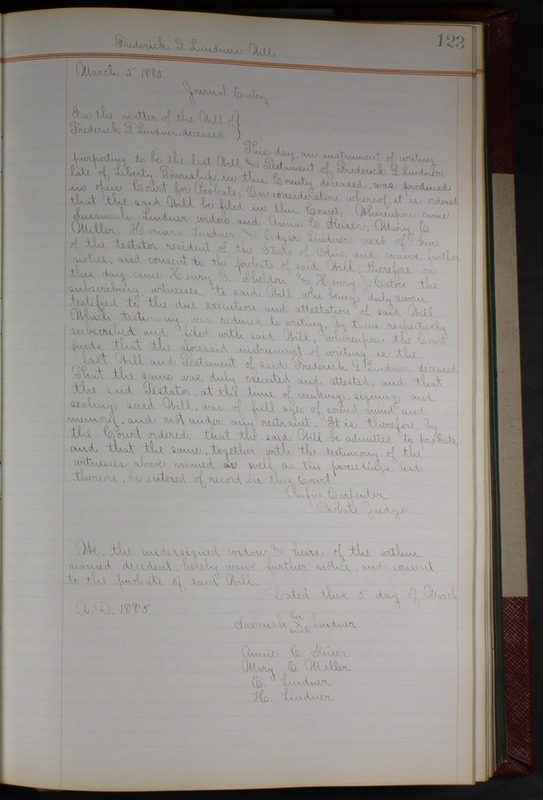 Frederick G. Lindner's Will.
123
March 5" 1885.
Journal Entry
In the matter of the Will of
Frederick G. Lindner deceased
This day, an instrument of writing
purporting to be the last Will and Testament of Frederick G. Lindner
late of Liberty Township in this County, deceased, was produced
in open Court for Probate, On consideration whereof, it is ordered
that the said Will be filed in this Court, Whereupon came
Susannah Lindner widow and Annie C. Mary C
Miller. Herman Lindner and Edgar Lindner next of kin
of the testator, resident of the State of Ohio and waive further
notice, and consent to the probate of said Will, therefore on
this day came Henry G. Sheldon and Henry Eaton the
subscribing witnesses to said Will, who being duly sworn
testified to the due execution and attestation of said Will.
Which testimony was reduced to writing, by them respectively
subscribed and filed with said Will, whereupon the Court
finds that the aforesaid instrument of writing is the
last Will and Testament of said Frederick G Lindner deceased
That the same was duly executed and attested, and that
the said Testator, at the time of making, signing and
sealing said Will, was of full age, of sound mind and
memory, and not under any restraint. It is therefore, by
the Court ordered, that the said Will be admitted to probate
and that the same, together with the testimony of the
witnesses above named as well as the proceedings had
thereon, be entered of record in this Court
Rufus Carpenter
Probate Judge
We, the undersigned widow and heirs of the within
named decedent, hereby waive further notice, and consent
to the probate of said Will.
Dated this 5 day of March
A. D. 1885
Susanah her x mark Lindner
Annie C.
Mary C. Miller
E. Lindner
H. Lindner